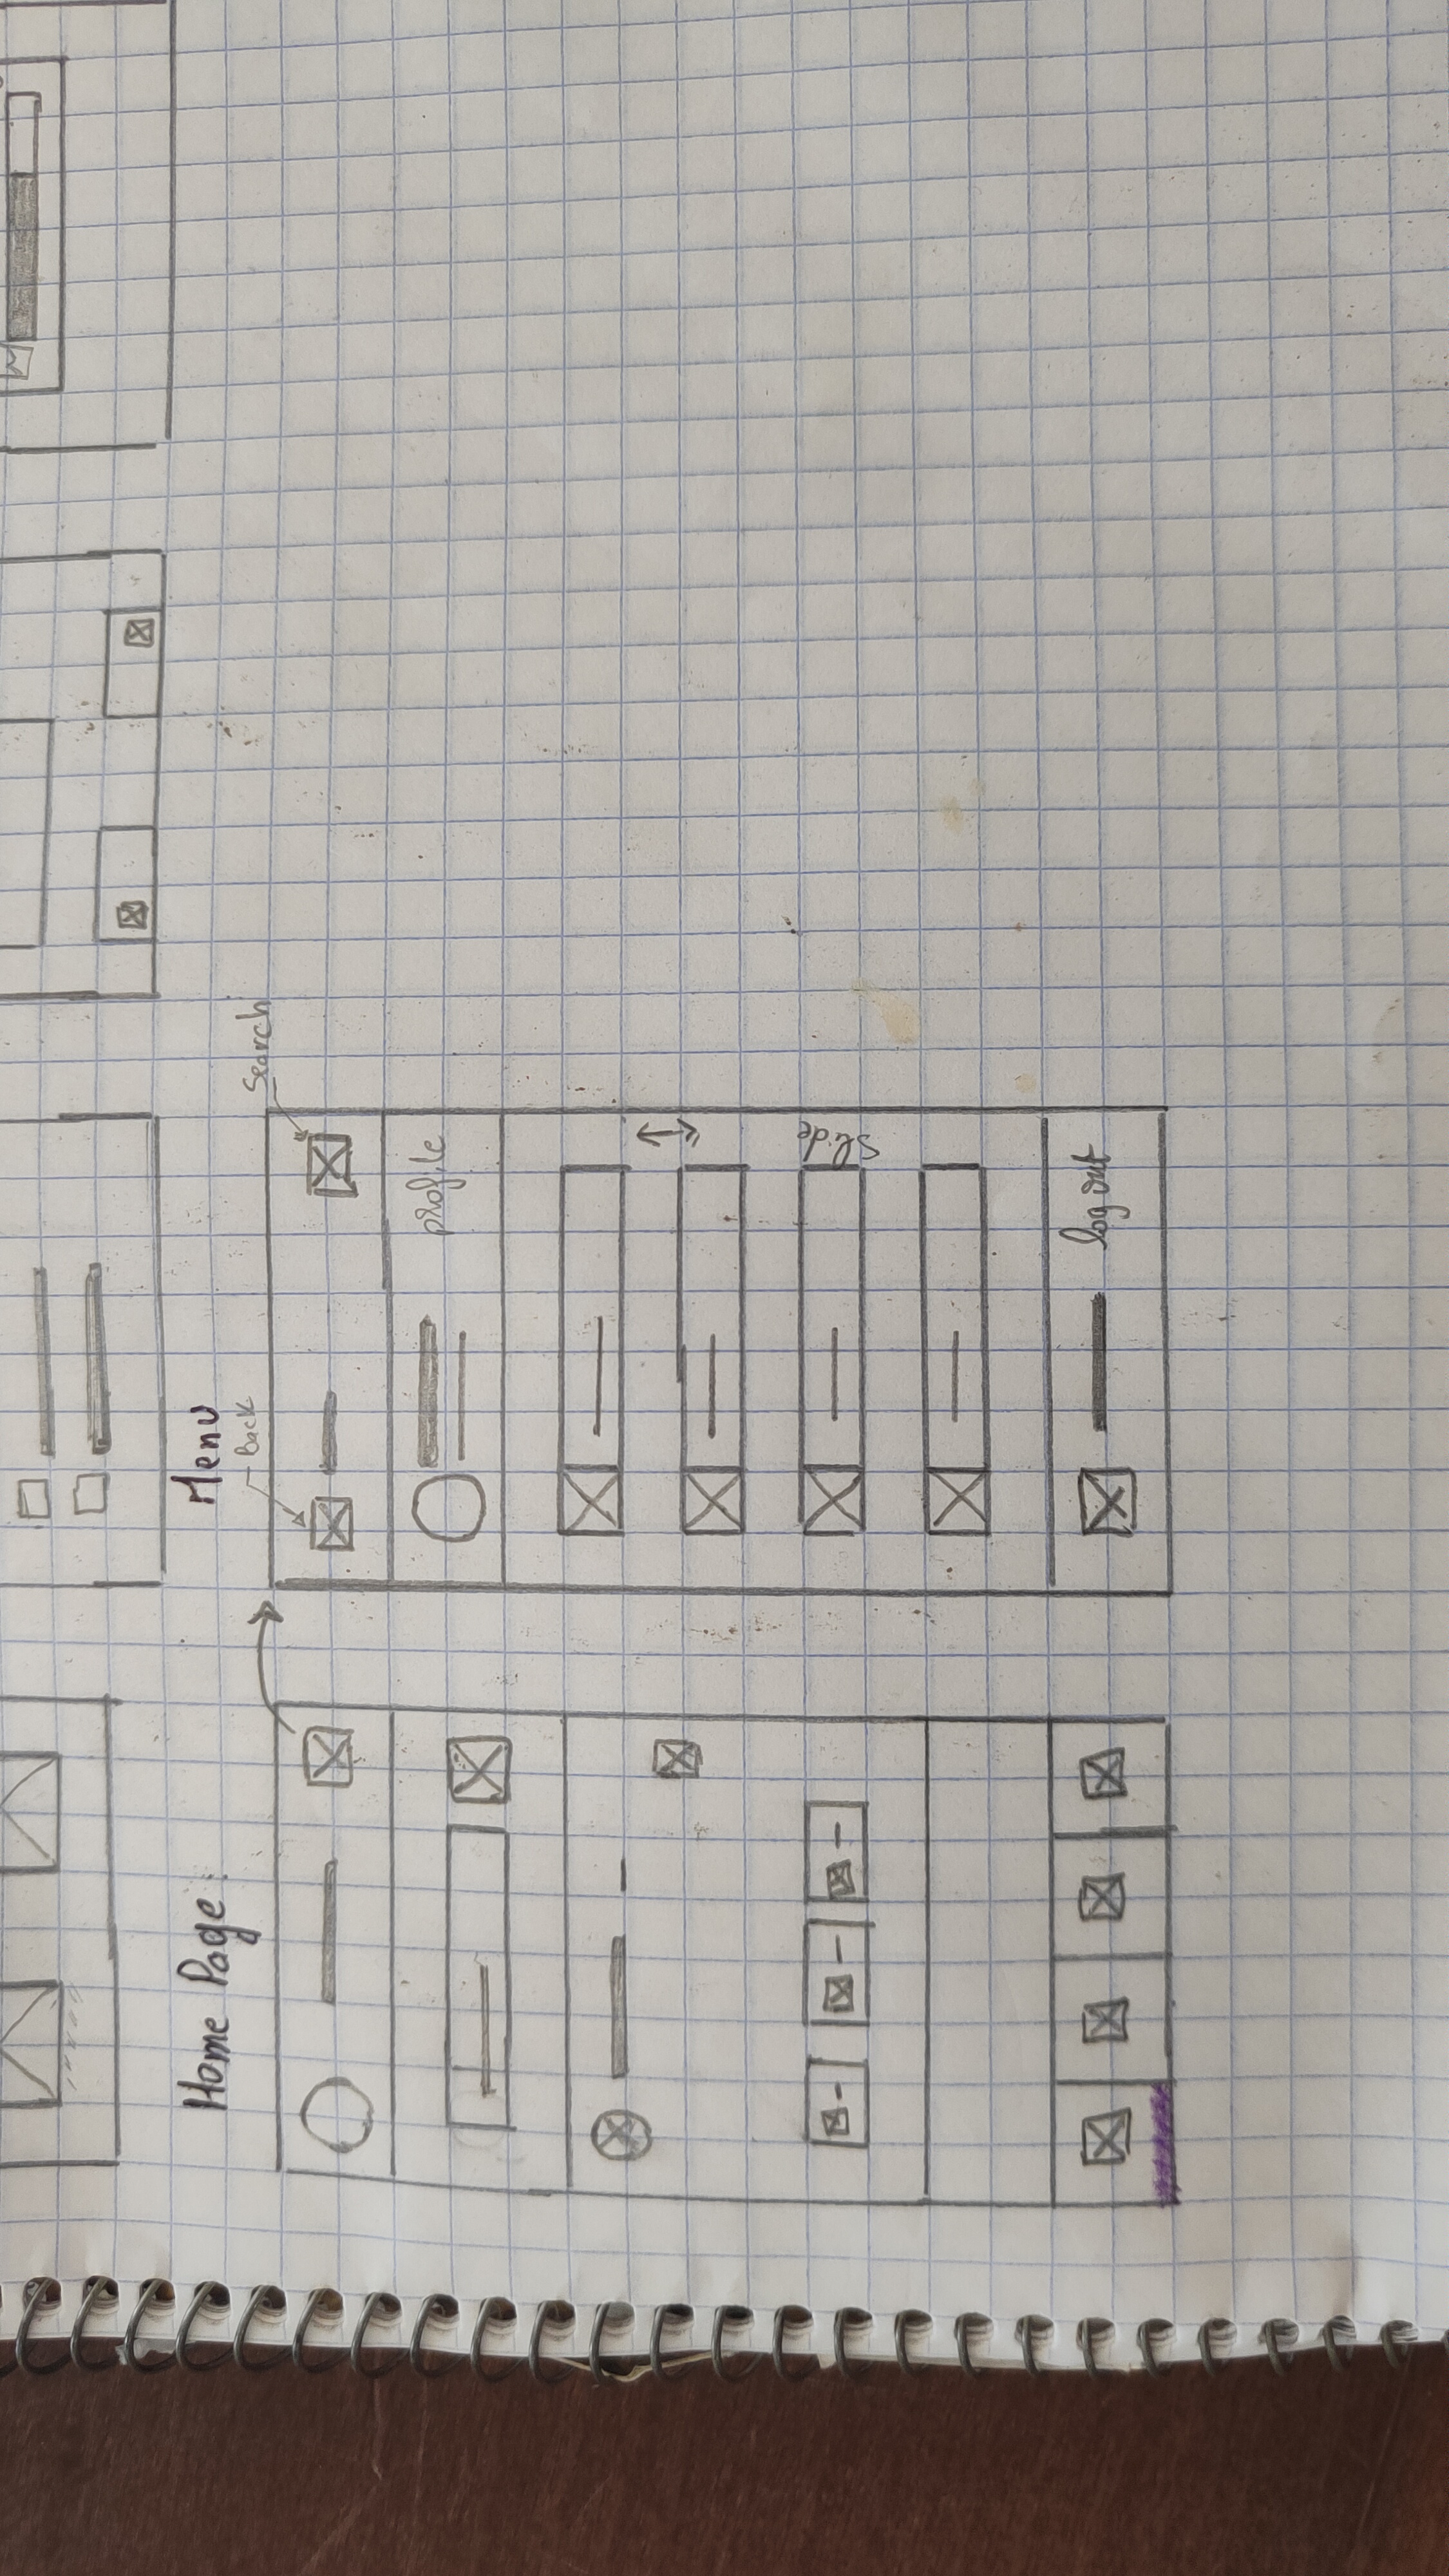 Home Page :
Menu
Back
Search
profile
Slide
log out